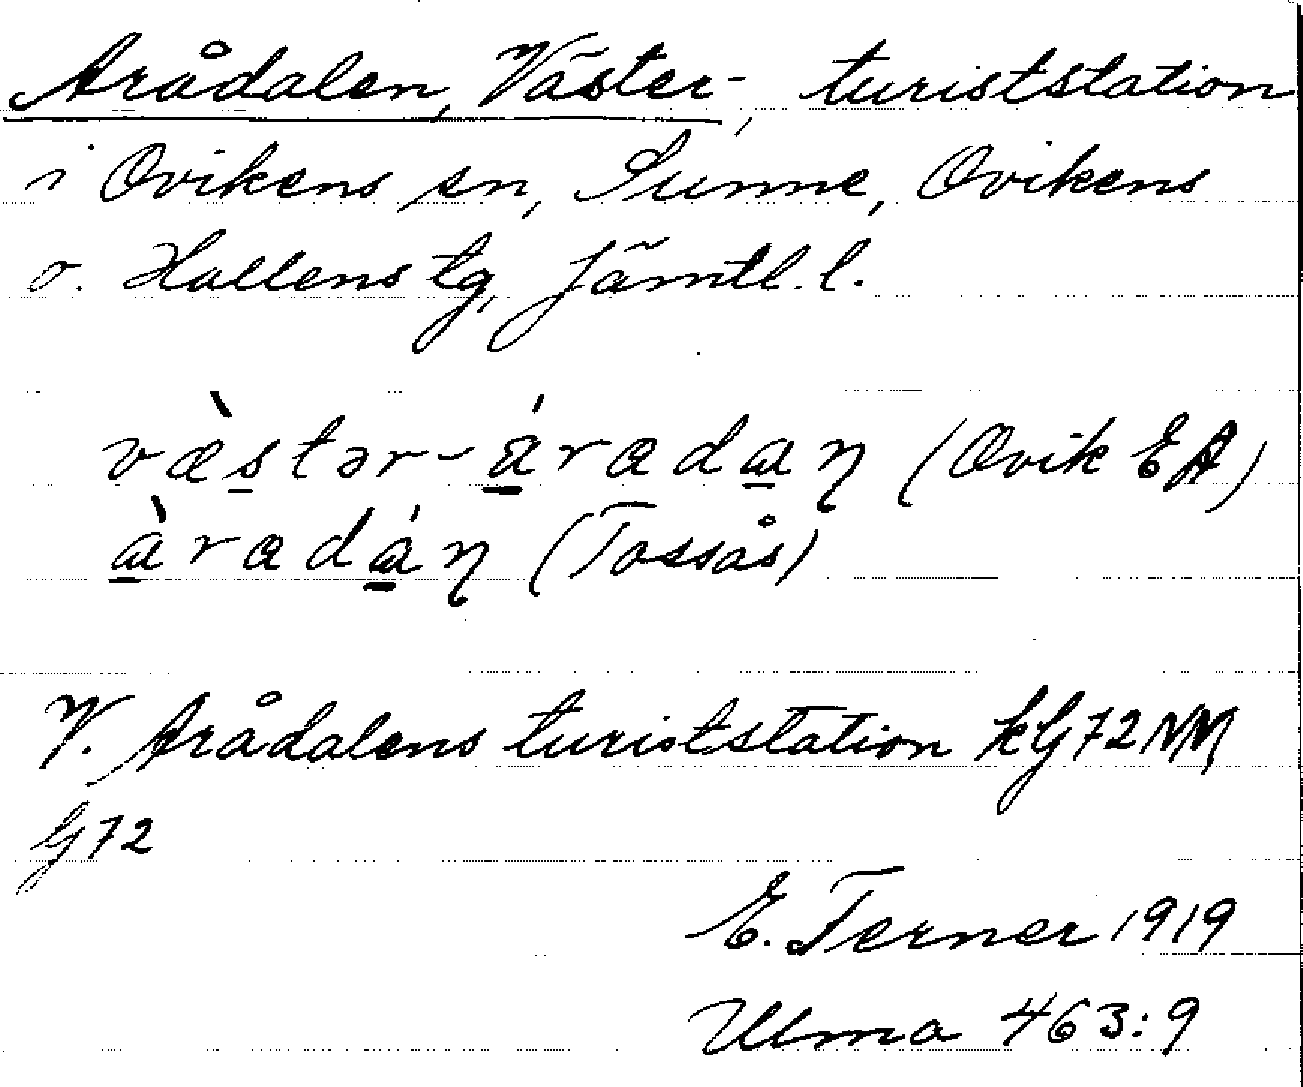 Arådalen, Väster-, turiststation
i Ovikens sn, Sunne, Ovikens
o. Hallens tg, Jämtl. l.
væ̀stər-áradaŋ (Ovik EA)
àradáŋ (Tossås)
V. Arådalens turiststation kG72NM
G72
E. Terner 1919
Ulma 463:9